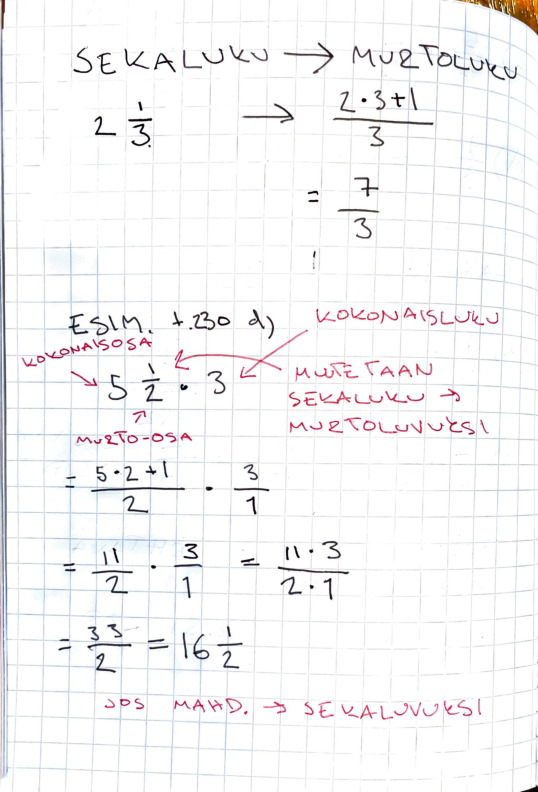 SEKALUKU → MURTOLUKU
2 1/3 → (2·3+1)/3
= 7/3
ESIM. t.230 d)
KOKONAISLUKU
KOKONAISOSA
5 1/2 · 3
MUUTETAAN
SEKALUKU →
MURTOLUVUKSI
MURTO-OSA
= (5·2+1)/2 · 3/1
= 11/2 · 3/1 = (11·3)/(2·1)
= 33/2 = 16 1/2
JOS MAHD. → SEKALUVUKSI